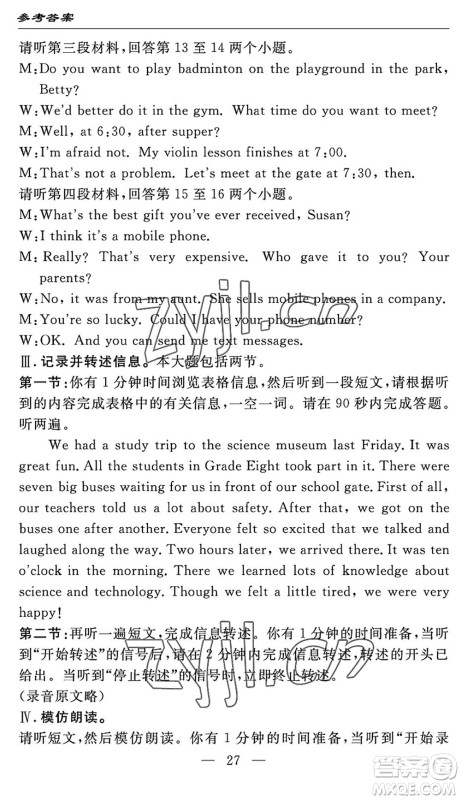 参考答案
请听第三段材料,回答第 13 至 14 两个小题。
M:Do you want to play badminton on the playground in the park,
Betty?
W:We'd better do it in the gym. What time do you want to meet?
M:Well, at 6:30, after supper?
W:I'm afraid not. My violin lesson finishes at 7:00.
M:That's not a problem. Let's meet at the gate at 7:30, then.
请听第四段材料,回答第 15 至 16 两个小题。
M:What's the best gift you have ever received, Susan?
W:I think it's a mobile phone.
M:Really? That's very expensive. Who gave it to you? Your
parents?
W:No, it was from my aunt. She sells mobile phones in a company.
M:You're so lucky. Could I have your phone number?
W:OK. And you can send me text messages.
Ⅲ. 记录并转述信息。本大题包括两节。
第一节:你有 1 分钟时间浏览表格信息,然后听到一段短文,请根据所
听到的内容完成表格中的有关信息,一空一词。请在 90 秒内完成答题。
听两遍。
We had a study trip to the science museum last Friday. It was
great fun. All the students in Grade Eight took part in it. There were
seven big buses waiting for us in front of our school gate. First of all,
our teachers told us a lot about safety. After that, we got on the
buses one after another. Everyone felt so excited that we talked and
laughed along the way. Two hours later, we arrived there. It was ten
o'clock in the morning. There we learned lots of knowledge about
science and technology. Though we felt a little tired, we were very
happy!
第二节:再听一遍短文,完成信息转述。你有 1 分钟的时间准备,当听
到“开始转述”的信号后,请在 2 分钟内完成信息转述,转述的开头已
给出。当听到“停止转述”的信号时,立即停止转述。
(录音原文略)
Ⅳ. 模仿朗读。
请听短文,然后模仿朗读。你有 1 分钟的时间准备,当听到“开始录
— 27 —
zyjl.cn
zyjl.cn
答案圈
MXQE.COM